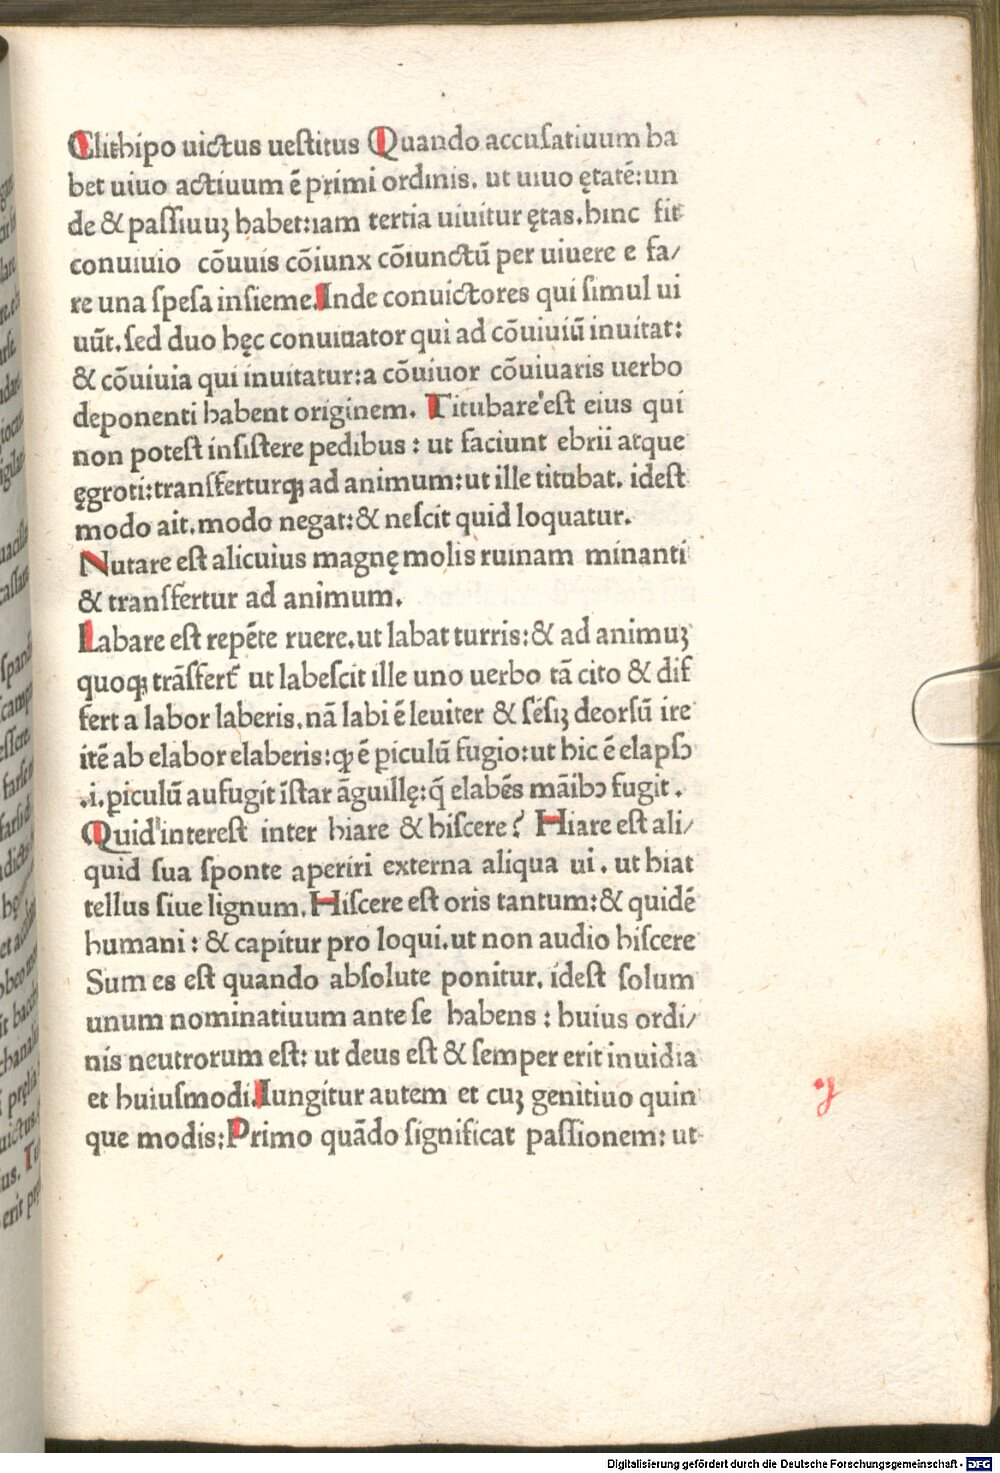 Clithipo uictus ueſtitus Quando accuſatiuum ha
bet uiuo actiuum ē primi ordinis. ut uiuo ętatē: un
de & paſſiuuꝫ habet: iam tertia uiuitur ętas. hinc fit
conuiuio cōuuis cōiunx cōiunctū per uiuere e fa/
re una ſpeſa inſieme. Inde conuictores qui ſimul ui
uūt. ſed duo hęc conuiuator qui ad cōuiuiū inuitat:
& cōuiuia qui inuitatur: a cōuiuor cōuiuaris uerbo
deponenti habent originem. Titubare eſt eius qui
non poteſt inſiſtere pedibus: ut faciunt ebrii atque
ęgroti: transferturqꝫ ad animum: ut ille titubat. ideſt
modo ait. modo negat: & neſcit quid loquatur.
Nutare eſt alicuius magnę molis ruinam minanti
& transfertur ad animum.
Labare eſt repēte ruere. ut labat turris: & ad animuꝫ
quoqꝫ trāſfert᷑ ut labeſcit ille uno uerbo tā cito & dif
fert a labor laberis. nā labi ē leuiter & ſēſiꝫ deorſū ire
itē ab elabor elaberis: ꝙ ē ꝑiculū fugio: ut hic ē elapſꝰ
.i. ꝑiculū aufugit īſtar āguillę: q̄ elabēs māibꝰ fugit.
Quid intereſt inter hiare & hiſcere? Hiare eſt ali/
quid ſua ſponte aperiri externa aliqua ui. ut hiat
tellus ſiue lignum. Hiſcere eſt oris tantum: & quidē
humani: & capitur pro loqui. ut non audio hiſcere
Sum es eſt quando abſolute ponitur. ideſt ſolum
unum nominatiuum ante ſe habens: huius ordi/
nis neutrorum eſt: ut deus eſt & ſemper erit inuidia
et huiuſmodi. Iungitur autem et cuꝫ genitiuo quin
que modis: Primo quādo ſignificat paſſionem: ut
Digitalisierung gefördert durch die Deutsche Forschungsgemeinschaft - DFG